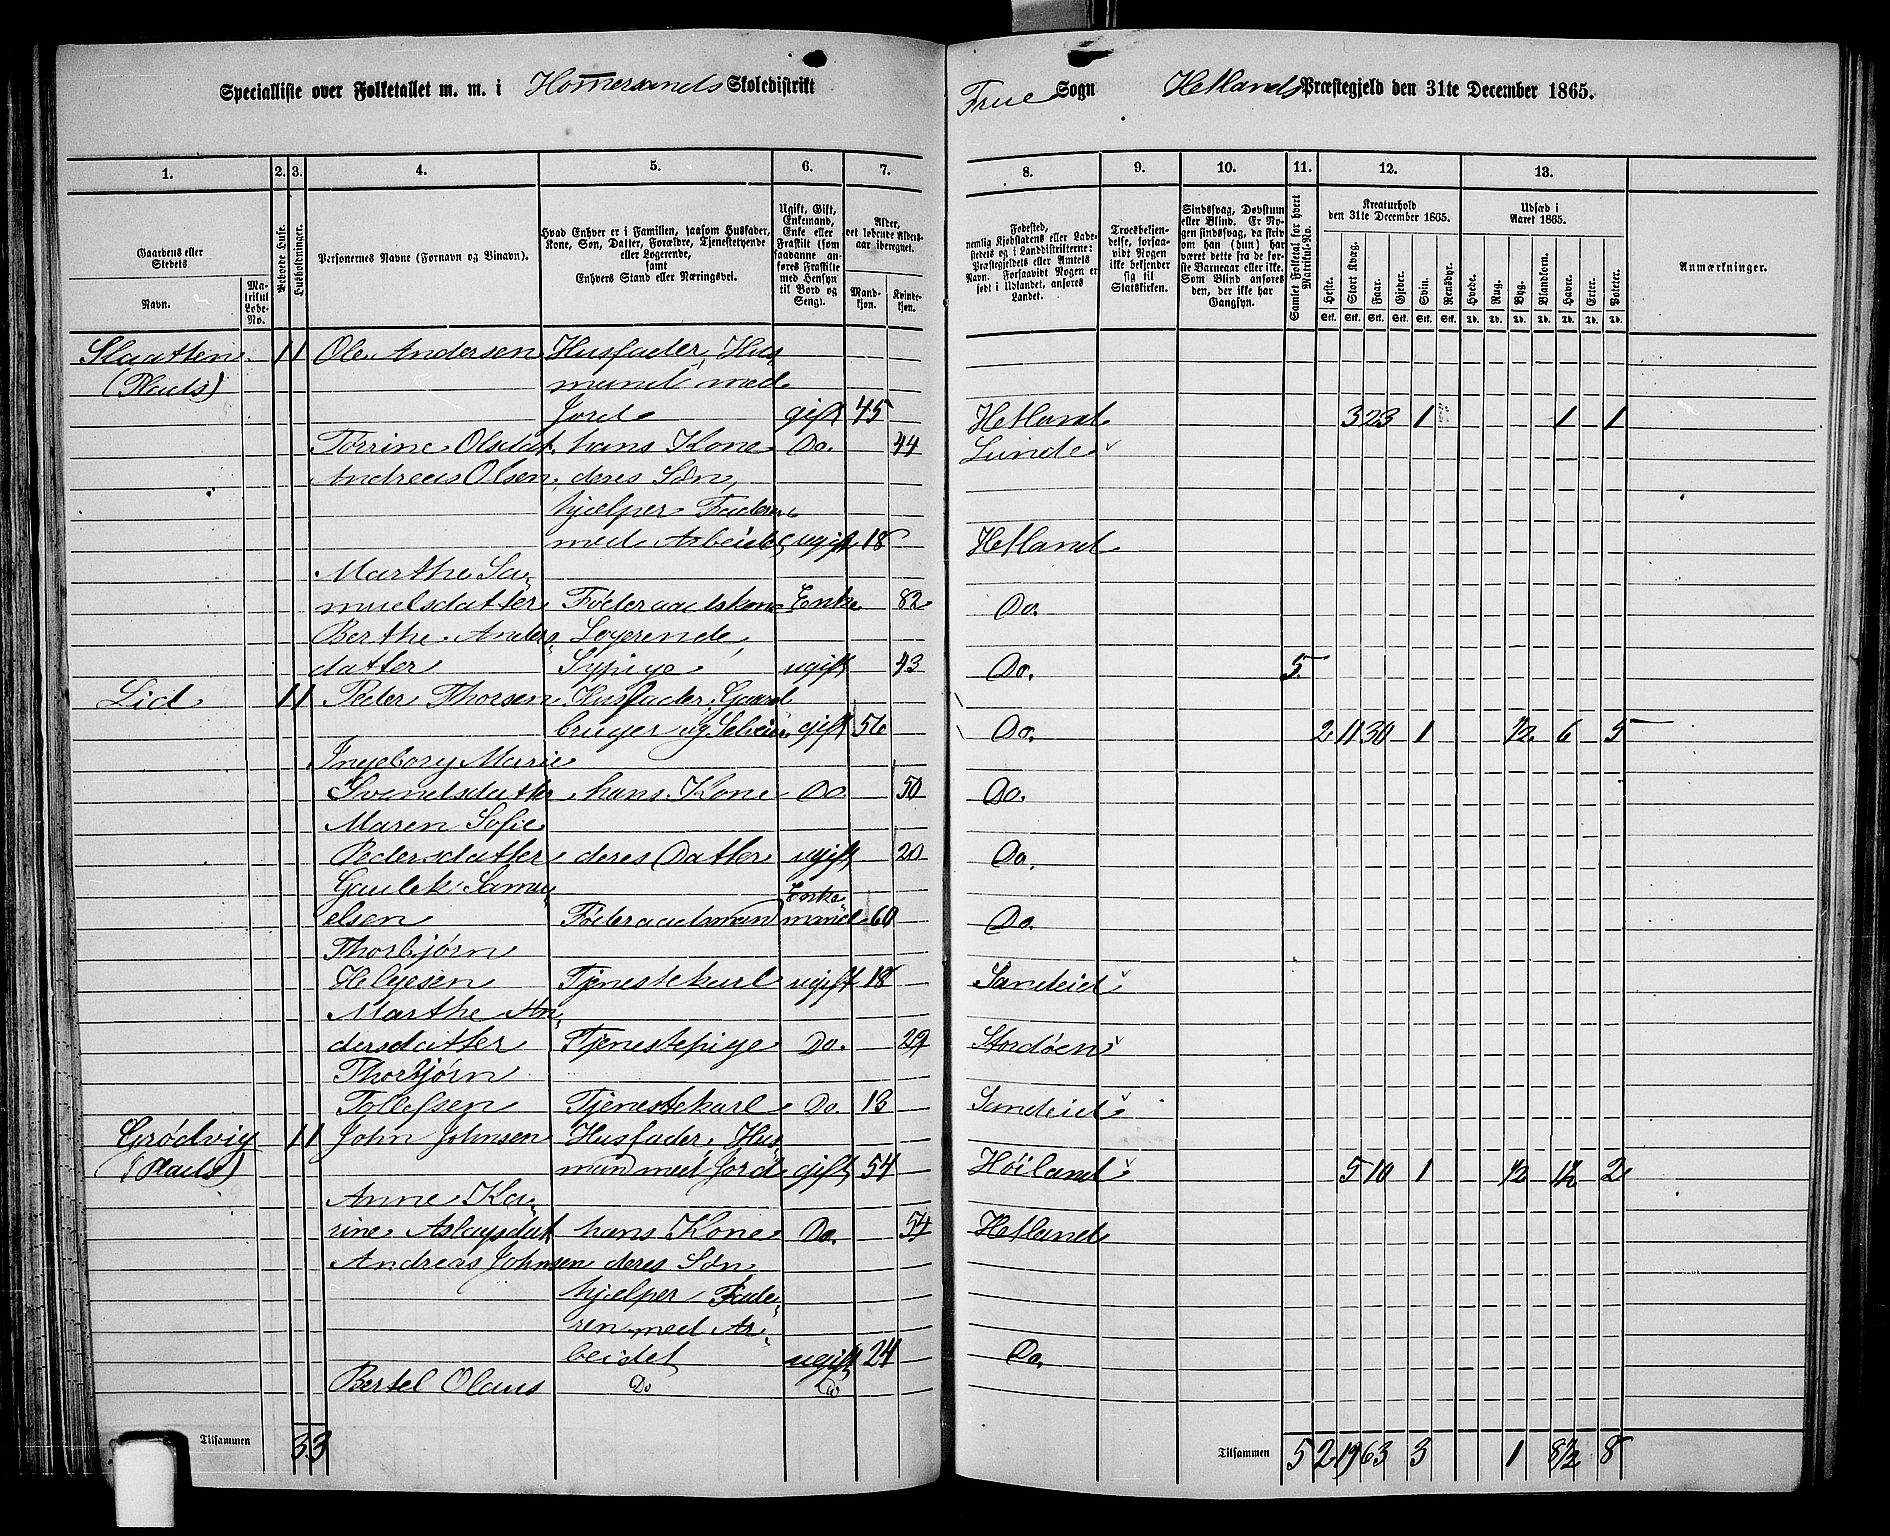 Specialliste over Folketallet m. m. i Hommersands Skoledistrikt
Frue Sogn Hetlands Præstegjeld den 31te December 1865.
1. 2. 3. 4. 5. 6. 7.
8. 9. 10. 11. 12. 13.
Gaardens eller Stedets
Navn.
Matrikul Løbe-No.
Beboede Huse.
Husholdninger.
Personernes Navne (Fornavn og Binavn).
Hvad Enhver er i Familien, saasom Husfader, Kone, Søn, Datter, Forældre, Tjenestetyende eller Logerende,
samt
Enhvers Stand eller Næringsvei.
Ugift, Gift, Enkemand, Enke eller Fraskilt (som saadanne anføres Fraskilte med Hensyn til Bord og Seng).
Alder, det løbende Aldersaar iberegnet.
Mandkjøn.
Kvindekjøn.
Fødested,
nemlig Kjøbstadens eller Ladestedets og i Landdistrikterne: Præstegjeldets eller Amtets Navn. Forsaavidt Nogen er født i Udlandet, anføres Landet.
Troesbekjendelse, forsaavidt Nogen ikke bekjender sig til Statskirken.
Sindssvag, Døvstum eller Blind. Er Nogen sindssvag, da skrives om han (hun) har været dette fra de første Barneaar eller ikke. Som Blind anføres den, der ikke har Gangsyn.
Samlet Folketal for hvert Matrikul-No.
Kreaturhold
den 31te December 1865.
Heste. Stort Kvæg. Faar. Gjeder. Svin. Rensdyr.
Stk. Stk. Stk. Stk. Stk. Stk.
Udsæd i
Aaret 1865.
Hvede. Rug. Byg. Blandkorn. Havre. Erter. Poteter.
Td. Td. Td. Td. Td. Td. Td.
Anmærkninger.
Slaatten 1 1 Ole Andersen Husfader, Hus-
(Plads) mand med
Jord gift 45 Hetland 3 23 1 1 1
Torrine Olsdat. hans Kone Do. 44 Lunde
Andreas Olsen, deres Søn,
hjælper Faderen
med Arbeidet ugift 18 Hetland
Marthe Sa-
muelsdatter Føderaadskone Enke 82 Do.
Berthe Anders- Logerende,
datter Sypige ugift 43 Do. 5
Lid 1 1 Peder Thorsen Husfader, Gaard-
bruger og Selveier gift 56 Do. 2 11 30 1 1/2 6 5
Ingeborg Marie
Svendsdatter hans Kone Do 50 Do.
Maren Sofie
Pedersdatter deres Datter ugift 20 Do.
Gaulek Samu- Enke-
elsen Føderaadsmand mand 60 Do.
Thorbjørn
Helgesen Tjenestekarl ugift 18 Sandeid
Marthe An-
dersdatter Tjenestepige Do. 29 Stordøen
Thorbjørn
Tollefsen Tjenestekarl Do. 13 Sandeid
Grødvig 1 1 John Johnsen Husfader, Hus-
(Plads) mand med Jord gift 54 Høiland 5 10 1 1/2 1 1/2 2
Anne Ka-
rine Aslagsdat hans Kone Do. 54 Hetland
Andreas Johnsen deres Søn
hjælper Fade-
ren med Ar-
beidet ugift 24 Do.
Bertel Olaus Do Do
Tilsammen 3 3
Tilsammen 5 2 19 63 3 1 8 1/2 8